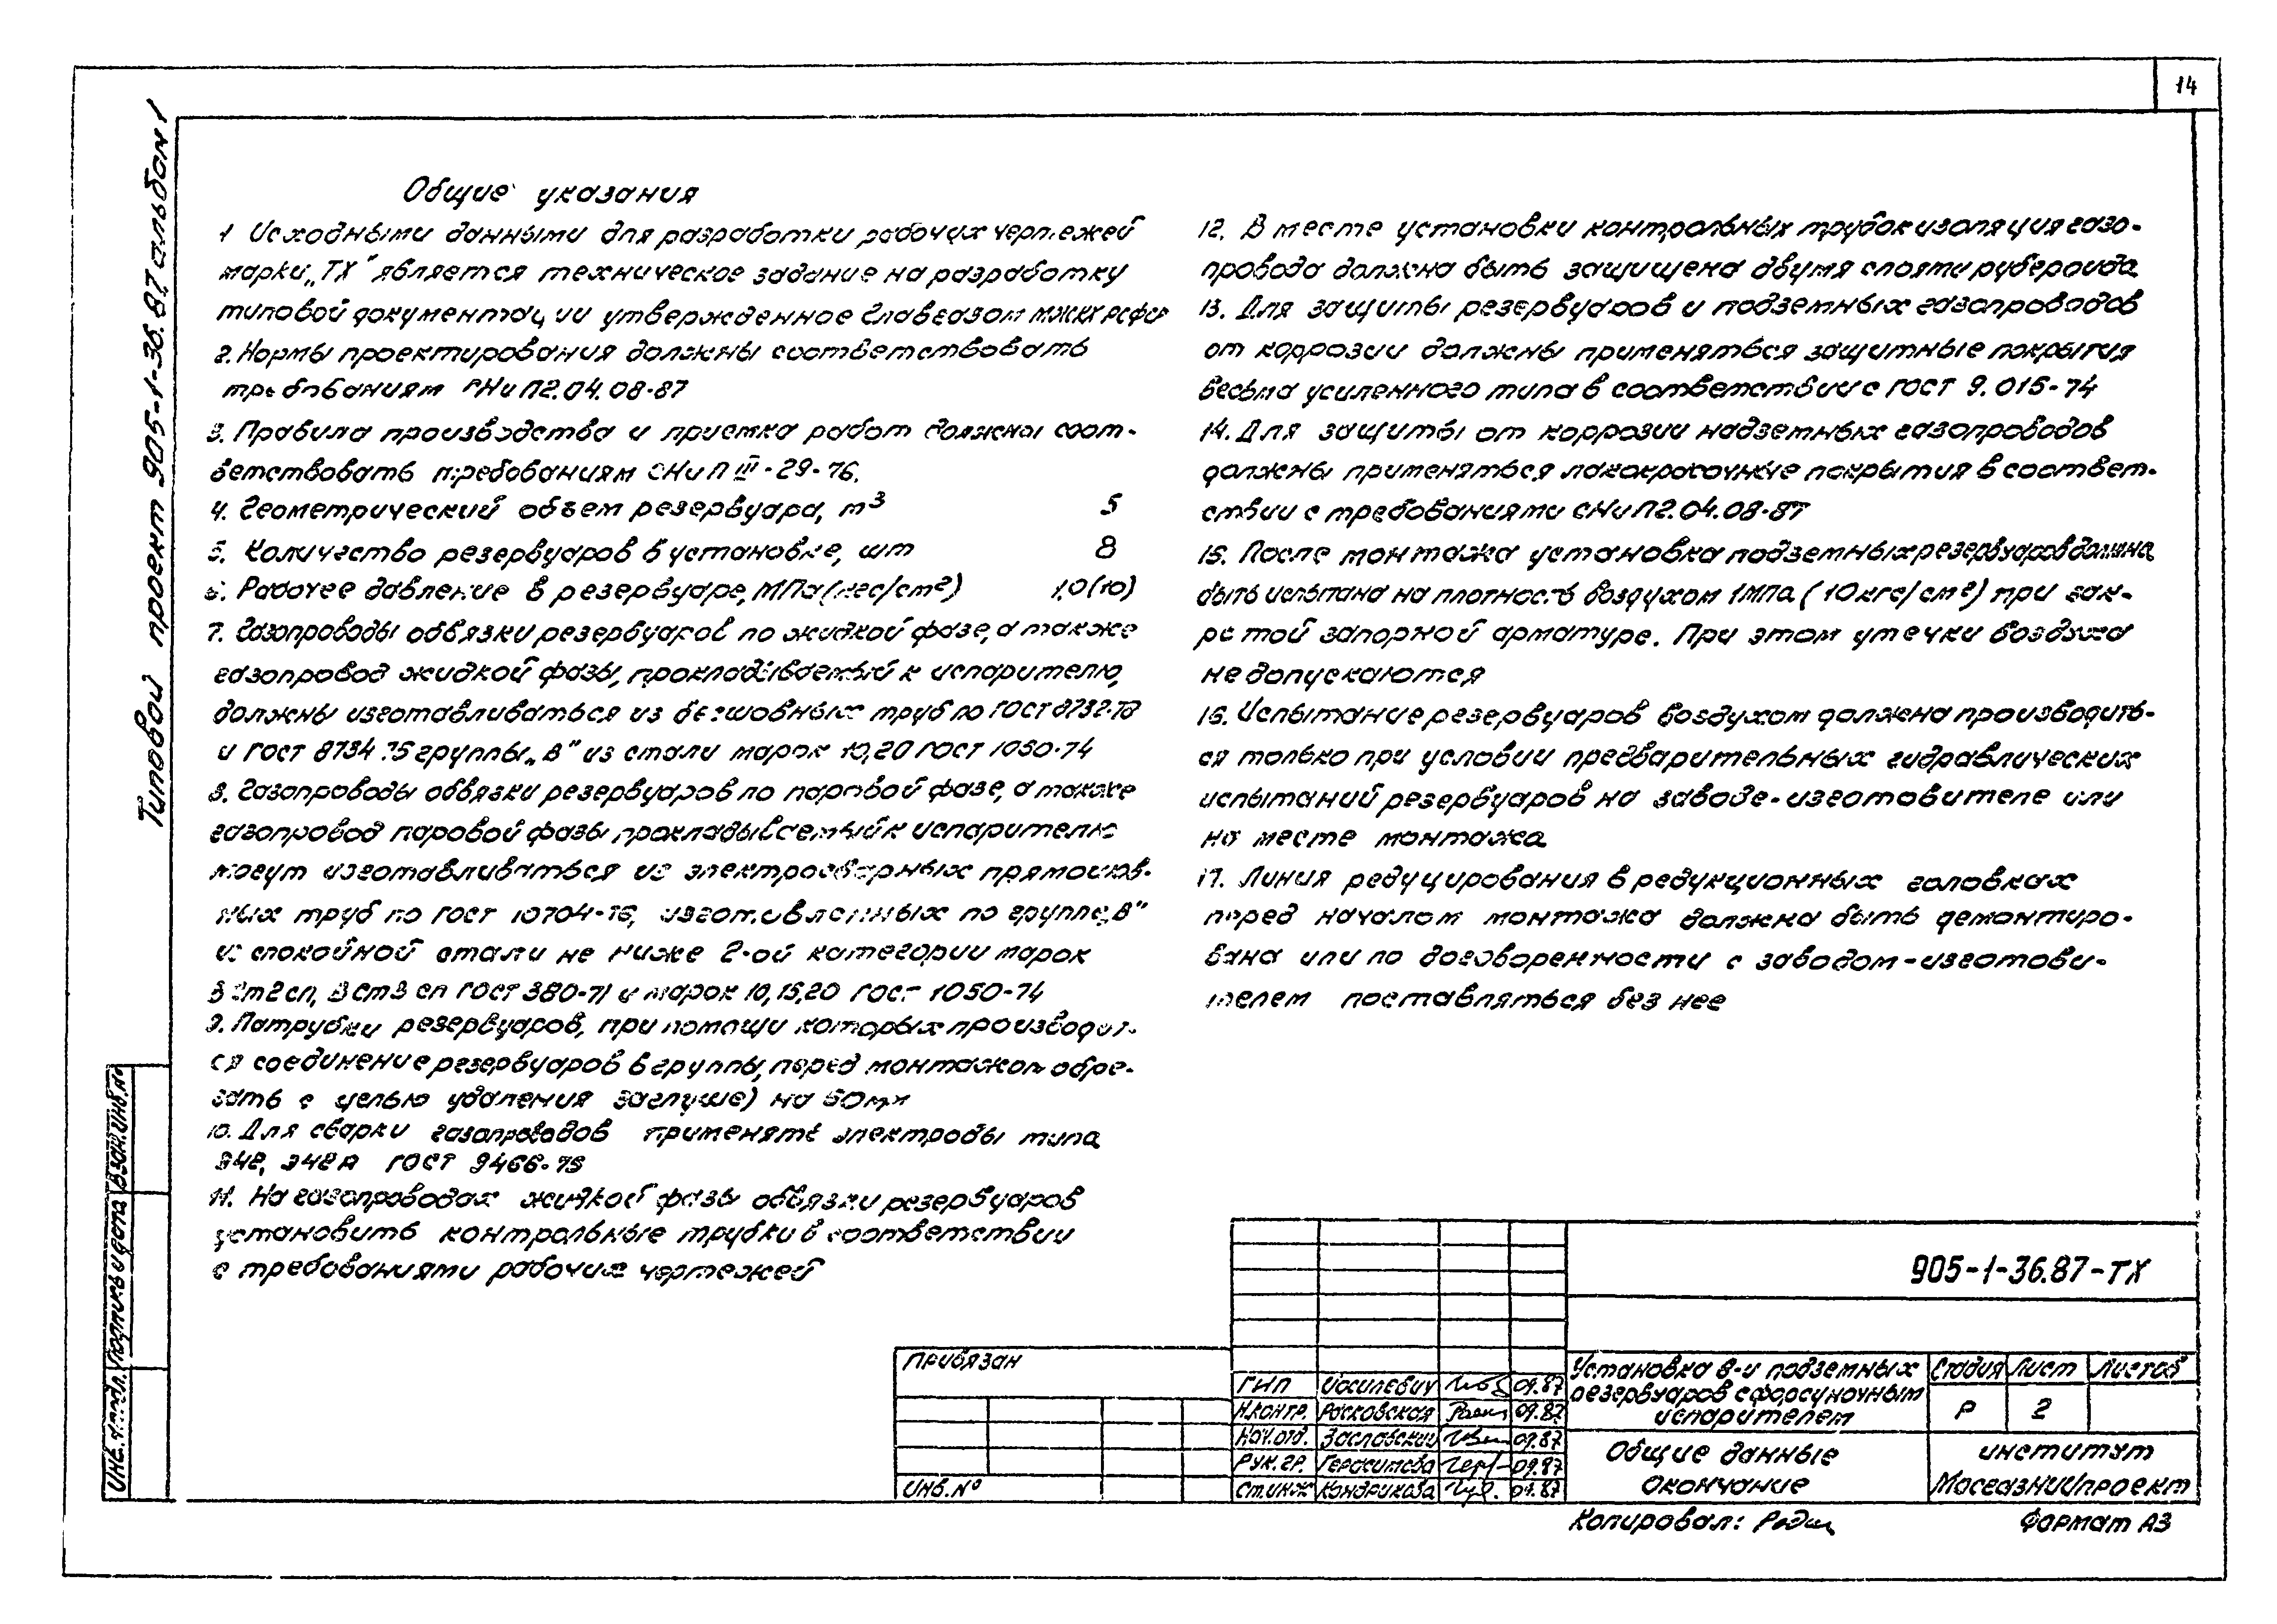 14
Типовой проект 905-1-36.87 альбом 1
Общие указания
1 Исходными данными для разработки рабочих чертежей
марки „ТХ" является техническое задание на разработку
типовой документации утвержденное Главгазом МЖКХ РСФСР
2. Нормы проектирования должны соответствовать
требованиям СНиП2.04.08-87
3. Правила производства и приемка работ должны соот-
ветствовать требованиям СНиП III-29-76.
4. Геометрический объем резервуара, м³ 5
5. Количество резервуаров в установке, шт 8
6. Рабочее давление в резервуаре, МПа (кгс/см²) 1,0(10)
7. Газопроводы обвязки резервуаров по жидкой фазе, а также
газопровод жидкой фазы, прокладываемый к испарителю,
должны изготавливаться из бесшовных труб по ГОСТ 8732-78
и ГОСТ 8734-75 группы „В" из стали марок 10,20 ГОСТ 1050-74
8. Газопроводы обвязки резервуаров по паровой фазе, а также
газопровод паровой фазы прокладываемый к испарителю
могут изготавливаться из электросварных прямошов-
ных труб по ГОСТ 10704-76, изготовленных по группе „В"
из спокойной стали не ниже 2-ой категории марок
В Ст2сп, ВСт3 сп ГОСТ 380-71 и марок 10,15,20 ГОСТ 1050-74
9. Патрубки резервуаров, при помощи которых производит-
ся соединение резервуаров в группы, перед монтажом обре-
зать с целью удаления заглушек на 50мм
10. Для сварки газопроводов применять электроды типа
Э42, Э42А ГОСТ 9466-75
11. На газопроводах жидкой фазы обвязки резервуаров
установить контрольные трубки в соответствии
с требованиями рабочих чертежей
12. В месте установки контрольных трубок изоляция газо-
провода должна быть защищена двумя слоями рубероида
13. Для защиты резервуаров и подземных газопроводов
от коррозии должны применяться защитные покрытия
весьма усиленного типа в соответствии с ГОСТ 9.015-74
14. Для защиты от коррозии надземных газопроводов
должны применяться лакокрасочные покрытия в соответ-
ствии с требованиями СНиП2.04.08-87
15. После монтажа установка подземных резервуаров должна
быть испытана на плотность воздухом 1МПа (10кгс/см²) при зак-
рытой запорной арматуре. При этом утечки воздуха
не допускаются
16. Испытание резервуаров воздухом должна производить-
ся только при условии предварительных гидравлических
испытаний резервуаров на заводе-изготовителе или
на месте монтажа
17. Линия редуцирования в редукционных головках
перед началом монтажа должна быть демонтиро-
вана или по договоренности с заводом-изготови-
телем поставляться без нее
Взам. инв. №
Подпись и дата
Инв. № подл.
Привязан
Инв. №
905-1-36.87-ТХ
ГИП Иосилевич 09.87
Н.контр. Расковская 09.87
Нач.отд. Заславский 09.87
Рук. гр. Герасимова 09.87
Ст.инж Кондрикова 09.87
Установка 8-и подземных
резервуаров с форсуночным
испарителем
Стадия Лист Листов
Р 2
Общие данные
Окончание
институт
МосгазНИИпроект
Копировал:
Формат А3